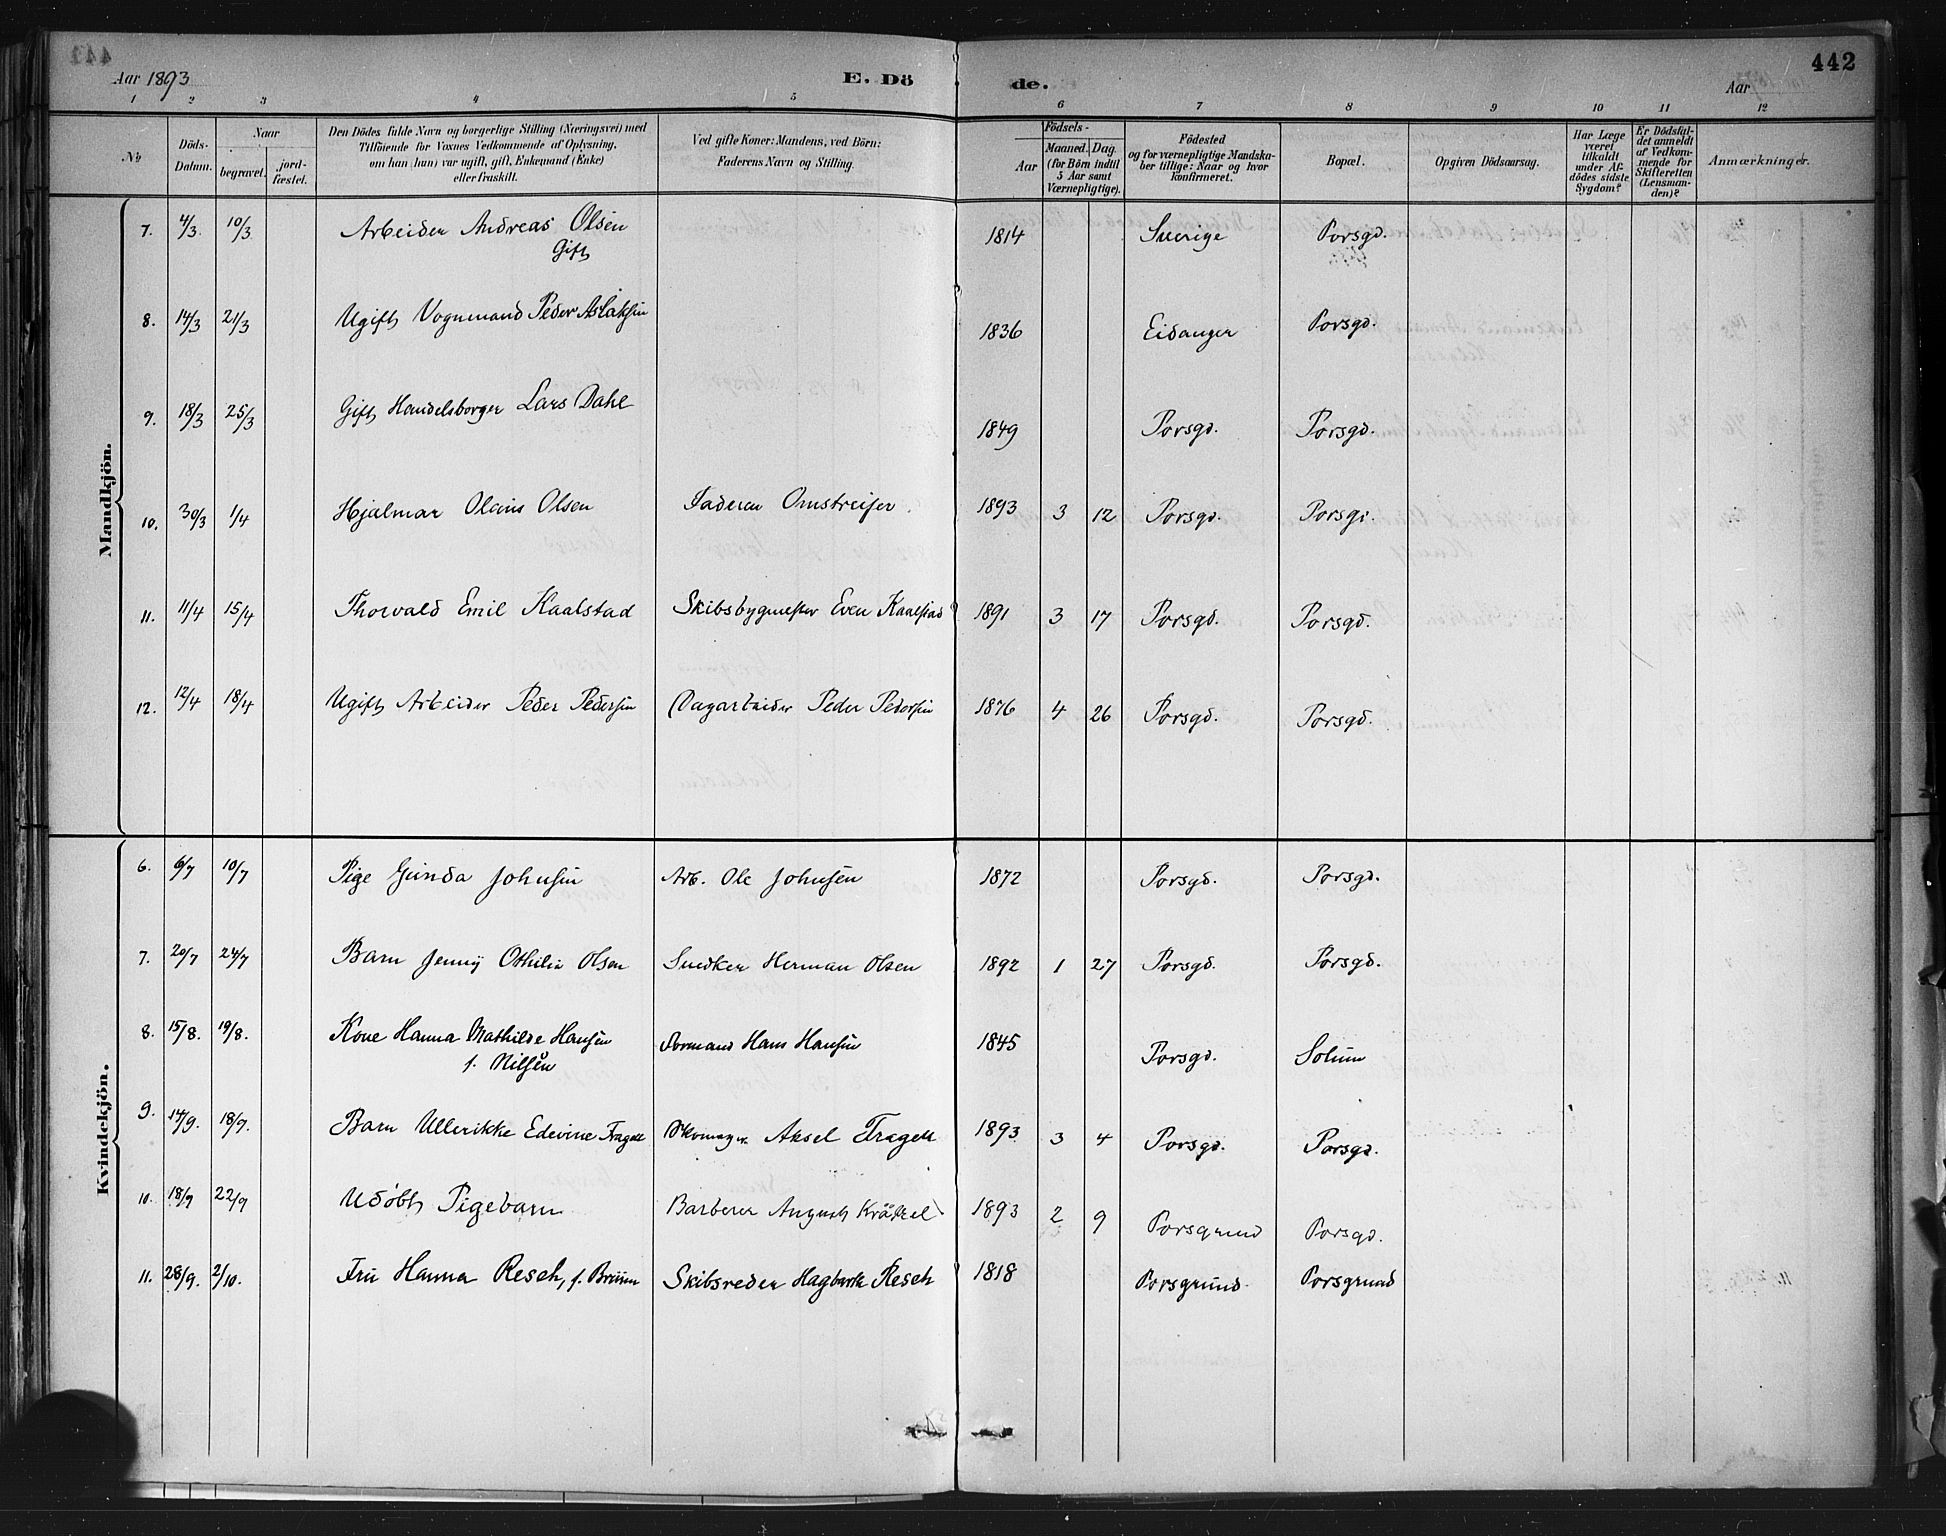 Aar 1893
E. Dö
de.
442
Aar
1 2 3 4 5 6 7 8 9 10 11 12
No
Döds-Datum.
Naar
begravet.
jord-fæstet.
Den Dödes fulde Navn og borgerlige Stilling (Næringsvei) med
Tilföiende for Voxnes Vedkommende af Oplysning,
om han (hun) var ugift, gift, Enkemand (Enke)
eller fraskilt.
Ved gifte Koner: Mandens, ved Börn:
Faderens Navn og Stilling.
Födsels-
Aar
Maaned. Dag.
(for Börn indtil
5 Aar samt
Værnepligtige).
Födested
og for værnepligtige Mandska-
ber tillige: Naar og hvor
konfirmeret.
Bopæl.
Opgiven Dödsaarsag.
Har Læge
været
tilkaldt
under Af-
dödes sidste
Sygdom?
Er Dödsfal-
det anmeldt
af Vedkom-
mende for
Skifteretten
(Lensman-
den)?
Anmærkninger.
Mandkjön.
7. 4/3. 10/3 Arbeider Andreas Olsen 1814 Sverige Porsgd.
Gift
8. 14/3 21/3 Ugift Vognmand Peder Aslaksen 1836 Eidanger Porsgd.
9. 18/3 25/3 Gift Handelsborger Lars Dahl 1849 Porsgd. Porsgd.
10. 30/3 1/4 Hjalmar Olaus Olsen Faderen Omstreifer. 1893 3 12 Porsgd. Porsgd.
11. 11/4 15/4 Thorvald Emil Kaalstad Skibsbygmester Even Kaalstad 1891 3 17 Porsgd. Porsgd.
12. 12/4 18/4 Ugift Arbeider Peder Pedersen Dagarbeider Peder Pedersen 1876 4 26 Porsgd. Porsgd.
Kvindekjön.
6. 6/7 10/7 Pige Gunda Johnsen Arb. Ole Johnsen 1872 Porsgd. Porsgd.
7. 20/7 24/7 Barn Jenny Othilie Olsen Snedker Herman Olsen 1892 1 27 Porsgd. Porsgd.
8. 15/8. 19/8. Kone Hanna Mathilde Hansen Formand Hans Hansen 1845 Porsgd. Solum
f. Nilsen
9. 14/9. 18/9. Barn Ullerikke Edevine Fragell Aksel Fragell 1893 3 4 Porsgd. Porsgd.
10. 18/9 22/9 Udöbt Pigebarn Barberer August 1893 2 9 Porsgrund Porsgd.
11. 28/9. 2/10. Fru Hanna Resch, f. Bruun Skibsreder Hagbarth Resch 1818 Porsgrund Porsgrund